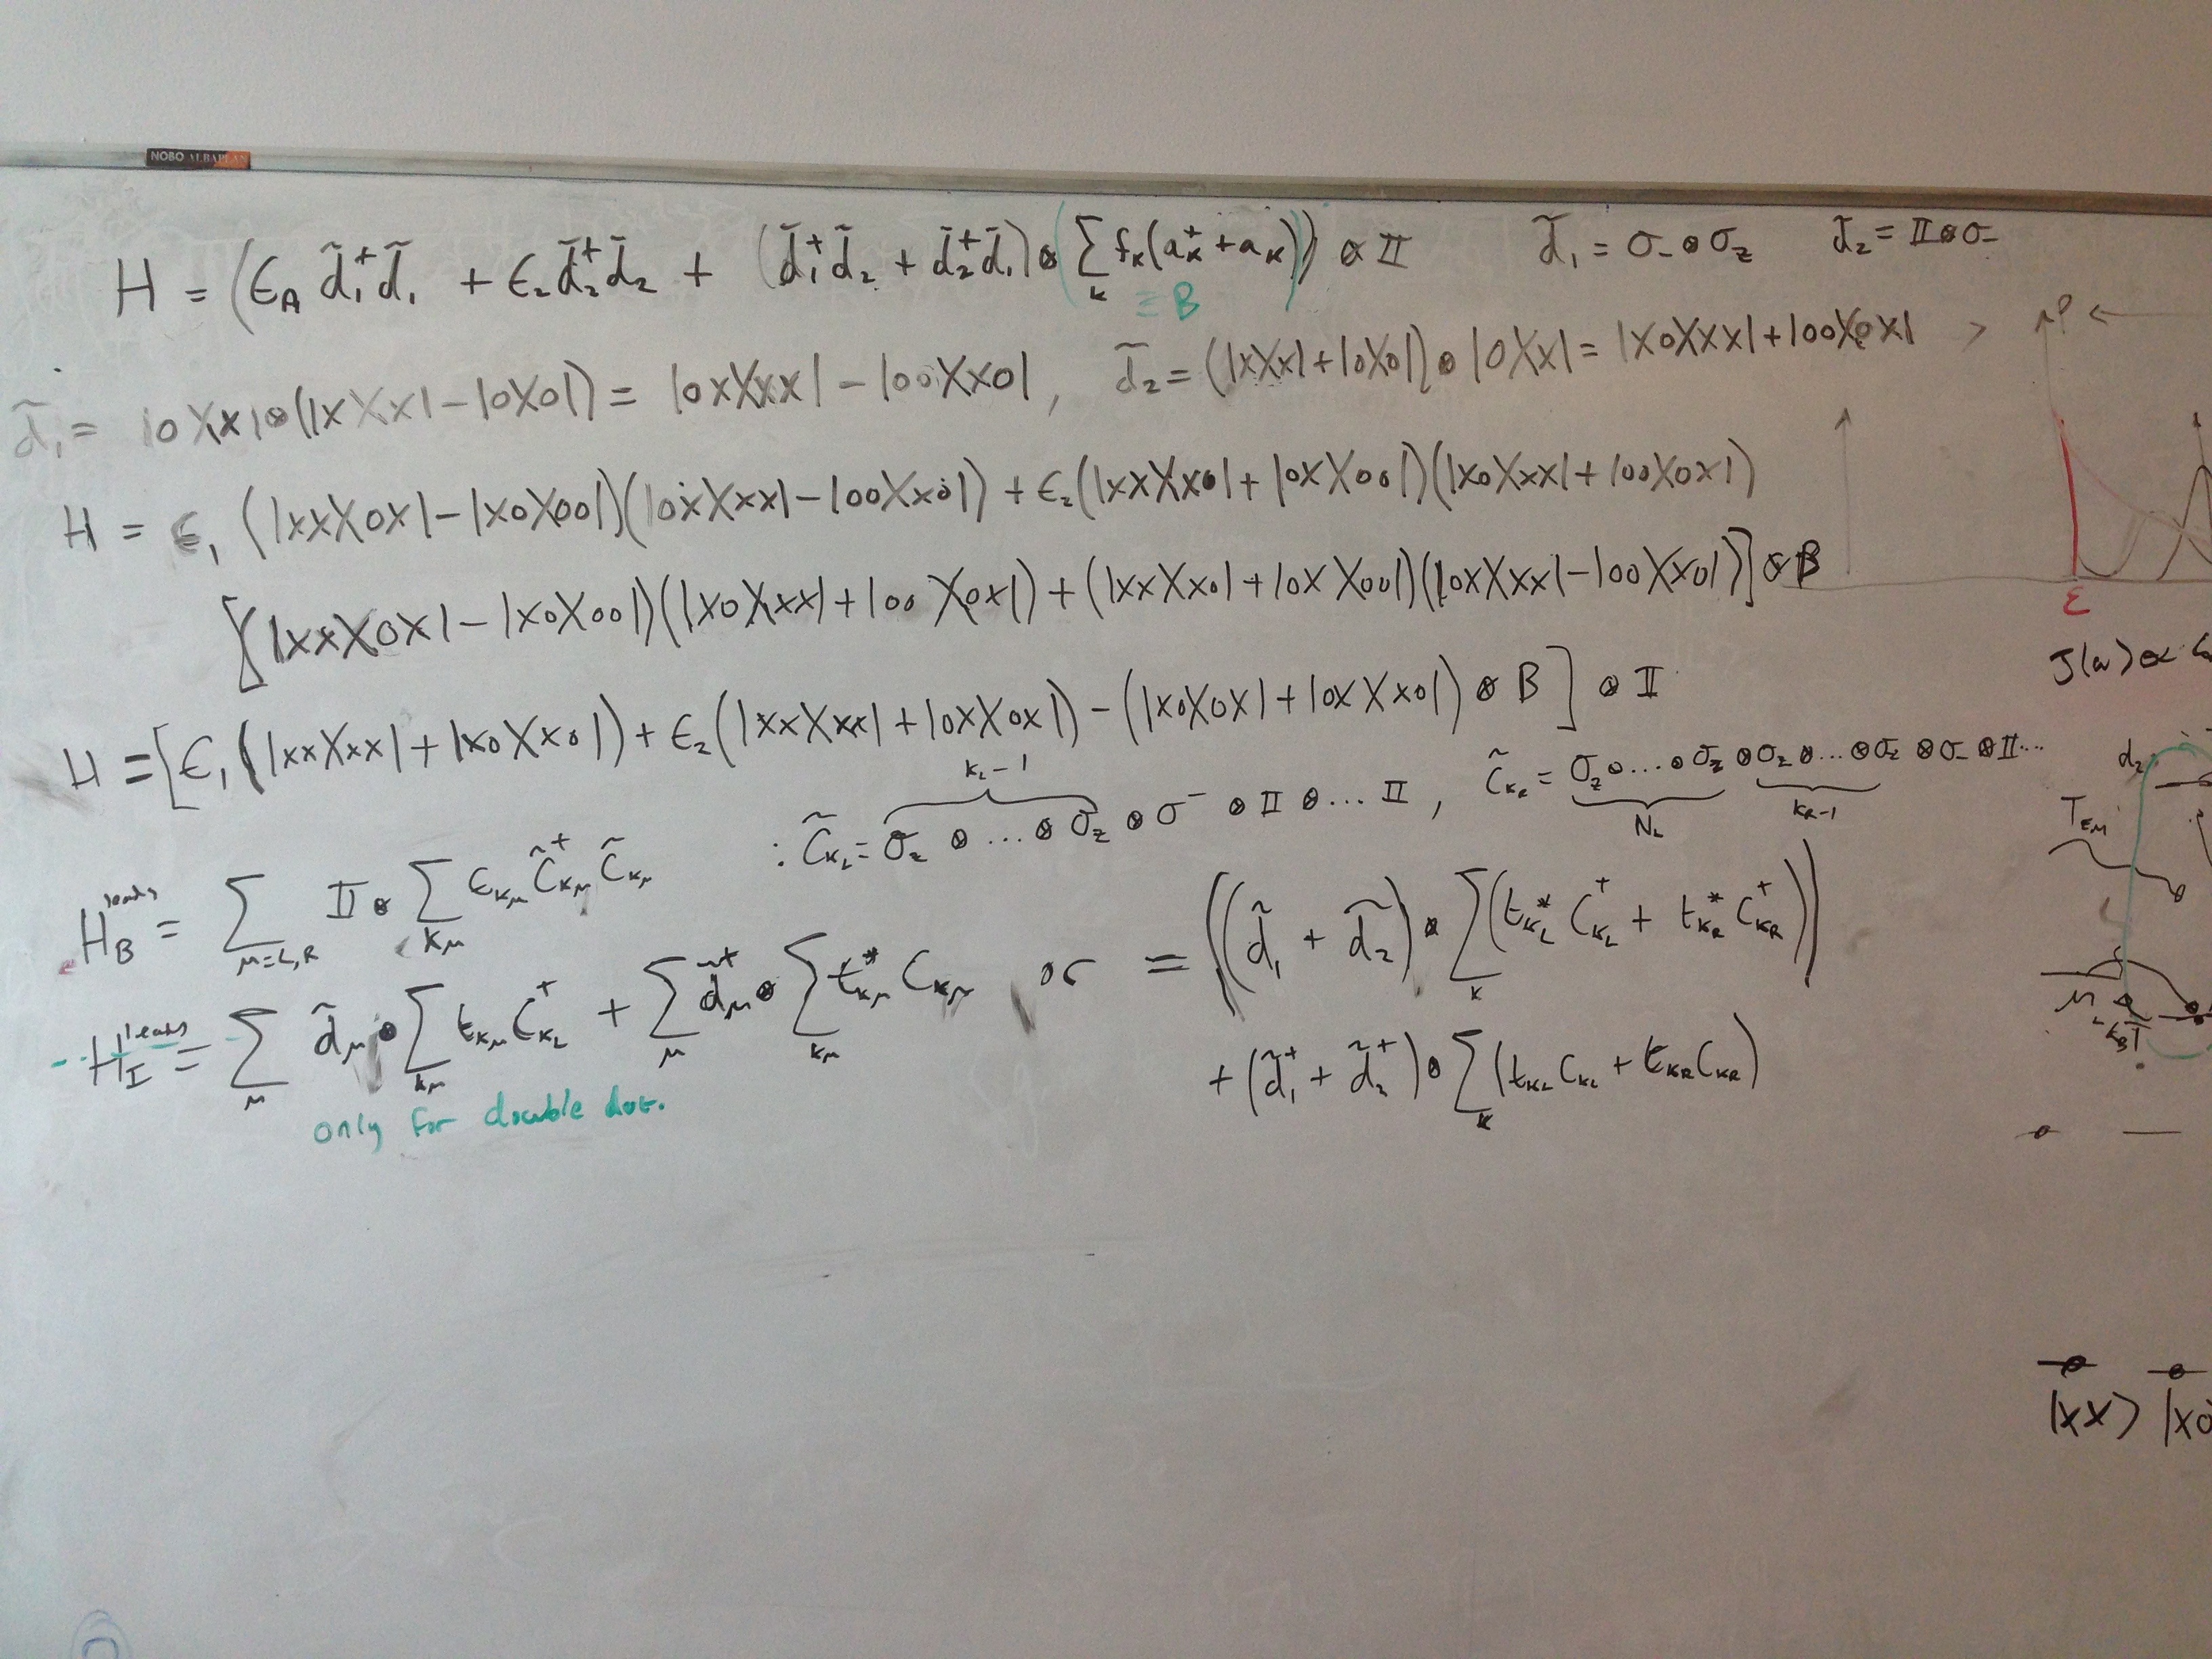 NOBO ALBAPLAN
H = (ϵ_A d̃₁⁺d̃₁ + ϵ₂ d̃₂⁺d̃₂ + (d̃₁⁺d̃₂ + d̃₂⁺d̃₁) ⊗ (∑_k f_k(a_k⁺ + a_k))) ⊗ 𝕀    d̃₁ = σ₋ ⊗ σ_z    d̃₂ = 𝕀 ⊗ σ₋
≡ B
d̃₁ = |0X×|⊗(|×X×| − |0X0|) = |0×X××| − |00X×0| , d̃₂ = (|×X×| + |0X0|) ⊗ |0X×| = |×0X××| + |00X0×|
H = ϵ₁ (|××X0×| − |×0X00|)(|0×X××| − |00X×0|) + ϵ₂(|××X×0| + |0×X00|)(|×0X××| + |00X0×|)
[(|××X0×| − |×0X00|)(|×0X××| + |00X0×|) + (|××X×0| + |0×X00|)(|0×X××| − |00X×0|)] ⊗ B
H = [ϵ₁(|××X××| + |×0X×0|) + ϵ₂(|××X××| + |0×X0×|) − (|×0X0×| + |0×X×0|) ⊗ B] ⊗ 𝕀
k_L−1
: C̃_kL = σ_z ⊗ … ⊗ σ_z ⊗ σ⁻ ⊗ 𝕀 ⊗ … 𝕀 , C̃_kR = σ_z ⊗ … ⊗ σ_z ⊗ σ_z ⊗ … ⊗ σ_z ⊗ σ₋ ⊗ 𝕀 …
N_L    k_R−1
H_B^leads = ∑_{μ=L,R} 𝕀 ⊗ ∑_{kμ} ϵ_kμ C̃⁺_kμ C̃_kμ
H_I^leads = ∑_μ d̃_μ ⊗ ∑_{kμ} t_kμ C⁺_kL + ∑_μ d̃⁺_μ ⊗ ∑_{kμ} t*_kμ C_kμ or = ((d̃₁ + d̃₂) ⊗ ∑_k (t*_kL C⁺_kL + t*_kR C⁺_kR))
+ (d̃₁⁺ + d̃₂⁺) ⊗ ∑_k (t_kL C_kL + t_kR C_kR)
only for double dot.
ε
J(ω) ∝
d₂
T_EM
μ_L
k_BT
|××⟩ |×0